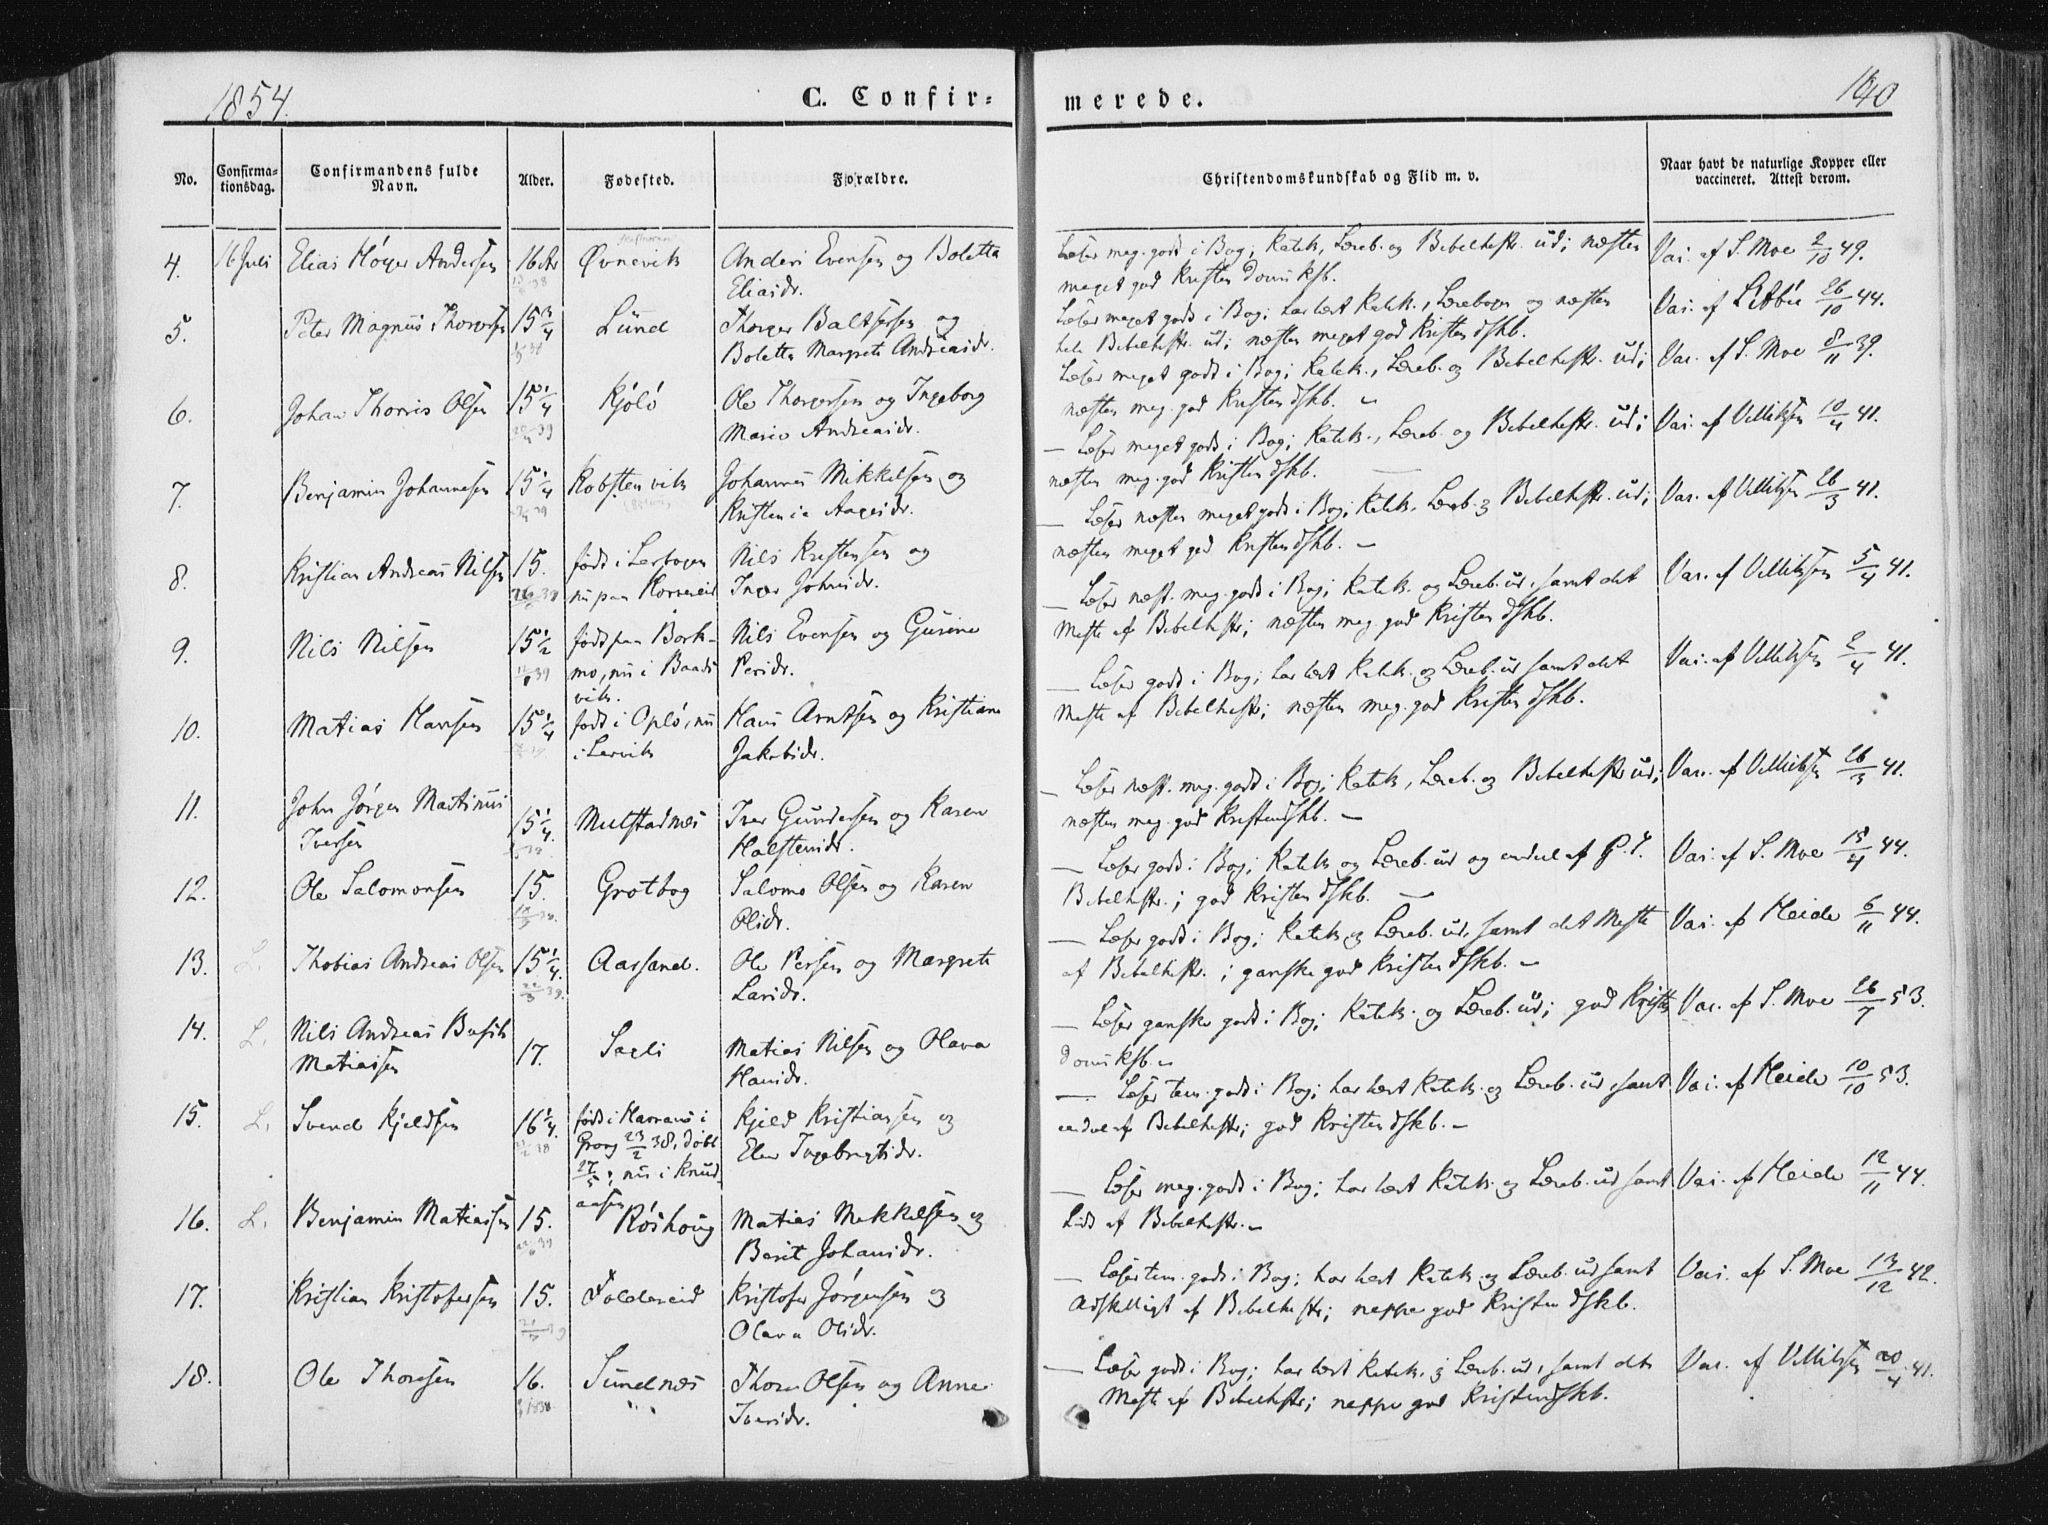 1854.
C. Confir=
merede.
140
No.
Confirma=
tionsdag.
Confirmandens fulde
Navn.
Alder.
Fødested.
Forældre.
Christendomskundskab og Flid m. v.
Naar havt de naturlige Kopper eller
vaccineret. Attest derom.
4. 16 Juli Elias Höyer Andersen 16 Ar Øvnevik Anders Evensen og Boletta
Eliasdr.
Læser meg. godt i Bog; Katek., Læreb. og Bibelhistr. ud; næsten
meget god Kristendomsksb.
Vac. af S. Moe 2/10 49.
5. Peter Magnus Thorgersen 15 3/4 Lund Thorger Baltsersen og
Boletta Margrete Andreasdr.
Læser meget godt i Bog; har lært Katek., Lærebogen og næsten
hele Bibelhistr. ud; næsten meget god Kristendskb.
Vac. af Libbie 26/10 44.
6. Johan Thomis Olsen 15 1/4 Kjölö Ole Thorgersen og Ingeborg
Marie Andreasdr.
Læser meget godt i Bog; Katek., Læreb. og Bibelhistr. ud;
næsten meg. god Kristendskb.
Vac. af S. Moe 8/11 39.
7. Benjamin Johannesen 15 1/4 Kobstenvik Johannes Mikkelsen og
Kristenia Aagesdr.
— Læser meget godt i Bog; Katek., Læreb. og Bibelhistr. ud;
næsten meg. god Kristendskb. —
Vac. af Villiksen 10/4 41.
8. Kristian Andreas Nilsen 15. født i Lerbogen
nu paa Horsereid
Nils Kristensen og
Inger Johnsdr.
— Læser næsten meget godt i Bog; Katek. Læreb. og Bibelhistr. ud;
næsten meget god Kristendskb. —
Vac. af Villiksen 26/3 41.
9. Nils Nilsen 15 1/2 født paa Bork-
mo, nu i Baads
vik.
Nils Evensen og Gurine
Persdr.
— Læser næst. meg. godt i Bog; Katek. og Læreb. ud, samt det
Meste af Bibelhistr; næsten meg. god Kristendskb.
Vac. af Villiksen 5/4 41.
10. Matias Hansen 15 1/4 født i Oplö, nu
i Lervik
Hans Arntsen og Kristiane
Jakobsdr.
— Læser godt i Bog; har lært Katek. og Læreb. ud samt det
Meste af Bibelhistr; næsten meg. god Kristendskb.
Vac. af Villiksen 2/4 41.
11. John Jörgen Martinus
Iversen
15 1/4 Mulstadnæs Iver Gundersen og Karen
Halstensdr.
— Læser næst. meg. godt i Bog; Katek., Læreb. og Bibelhistr ud;
næsten meg. god Kristendskb. —
Vac. af Villiksen 26/3 41.
12. Ole Salomonsen 15. Grotbog Salomo Olsen og Karen
Olsdr.
— Læser godt i Bog; Katek. og Læreb. ud og endel af G. T.
Bibelhistr.; god Kristendskb. —
Vac. af S. Moe 15/4 44.
13. L. Thobias Andreas Olsen 15 1/4. Aarsand. Ole Persen og Margrete
Larsdr.
— Læser godt i Bog; Katek. og Læreb. ud, samt det Meste
af Bibelhistr.; ganske god Kristendskb. —
Vac. af Heide 6/11 44.
14. L. Nils Andreas
Matiassen
17. Sagli Matias Nilsen og Olava
Hansdr.
— Læser ganske godt i Bog; Katek. og Læreb. ud; god Kristen
domsksb. —
Vac. af S. Moe 26/7 53.
15. L. Svend Kjeldsen 16 1/4. født i Harrans i
Grong 23/2 38, döbt
27/5; nu i Knud
aasen
Kjeld Kristiansen og
Elen Ingebrigtsdr.
— Læser tem. godt i Bog; har lært Katek. og Læreb. ud, samt
endel af Bibelhistr; god Kristendskb. —
Vac. af Heide 10/10 53.
16. L. Benjamin Matiassen 15. Röshoug Matias Mekkelsen og
Berit Johansdr.
— Læser meg. godt i Bog; har lært Katek. og Læreb. ud samt
Lidt af Bibelhistr. —
Vac. af Heide 12/11 44.
17. Kristian Kristofersen 15. Foldereid Kristofer Jörgensen og
Olava Olsdr.
— Læser tem. godt i Bog; har lært Katek. og Læreb. ud samt
Adskilligt af Bibelhistr; neppe god Kristendskb.
Vac. af S. Moe 13/12 42.
18. Ole Thorsen 16. Sundnæs Thore Olsen og Anne
Iversdr.
— Læser godt i Bog; har lært Katek. og Læreb. ud, samt det
Meste af Bibelhistr; neppe god Kristendskb.
Vac. af Villiksen 20/4 41.